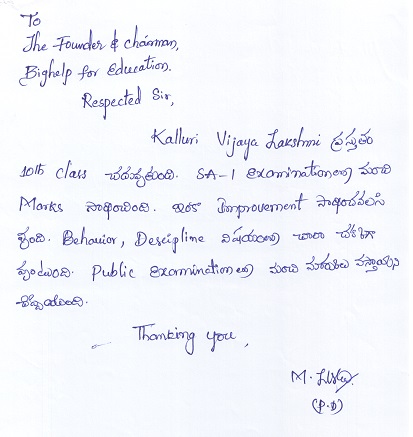 To
The Founder & chairman,
Bighelp for Education.
Respected Sir,
Kalluri Vijaya Lakshmi ప్రస్తుతం
10th class చదువుతుంది. SA-1 Examinationలో మంచి
Marks సాధించింది. ఇంకా Improvement సాధించవలసి
వుంది. Behavior, Descipline విషయంలో చాలా చక్కగా
వుంటుంది. Public Examinationలో మంచి మార్కులు వస్తాయని
Thanking you,
M.
(P.D)